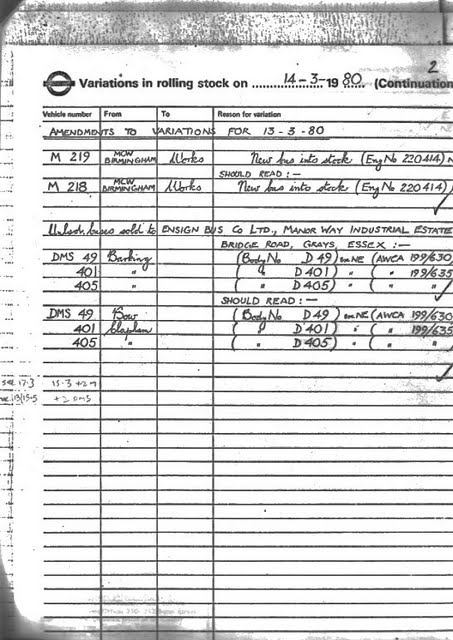 2
Variations in rolling stock on 14-3-19 80 (Continuation
Vehicle number From To Reason for variation
AMENDMENTS TO VARIATIONS FOR 13-3-80
M 219 MCW BIRMINGHAM Works New bus into stock (Eng No 220414)
SHOULD READ:—
M 218 MCW BIRMINGHAM Works New bus into stock (Eng No 220414)
buses sold to ENSIGN BUS Co LTD., MANOR WAY INDUSTRIAL ESTATE
BRIDGE ROAD, GRAYS, ESSEX :—
DMS 49 Barking (Body No D 49) (AWCA 199/630
401 " ( " D 401) " ( " 199/635
405 " ( " D 405) " ( "
SHOULD READ:—
DMS 49 Bow (Body No D 49) (AWCA 199/630
401 Clapham ( " D 401) " ( " 199/635
405 " ( " D 405) " ( "
see 17.3 15.3 +2 m
+2 DMS